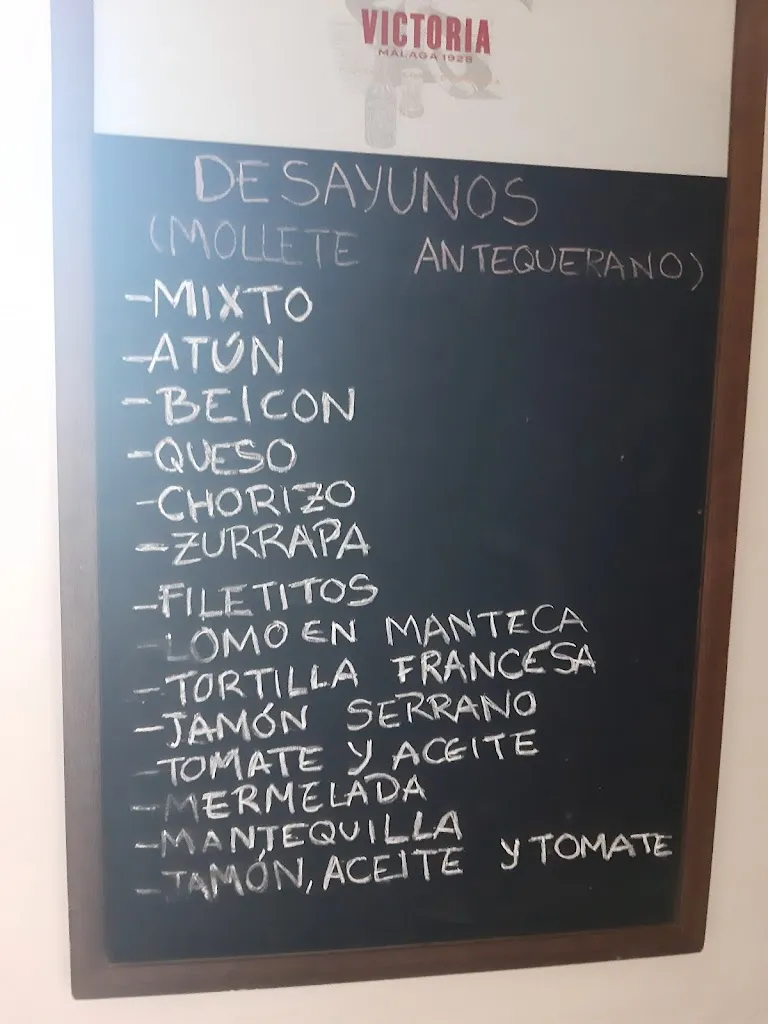 VICTORIA
MÁLAGA 1928
DESAYUNOS
(MOLLETE ANTEQUERANO)
-MIXTO
-ATÚN
-BEICON
-QUESO
-CHORIZO
-ZURRAPA
-FILETITOS
-LOMO EN MANTECA
-TORTILLA FRANCESA
-JAMÓN SERRANO
-TOMATE Y ACEITE
-MERMELADA
-MANTEQUILLA
-JAMÓN, ACEITE Y TOMATE